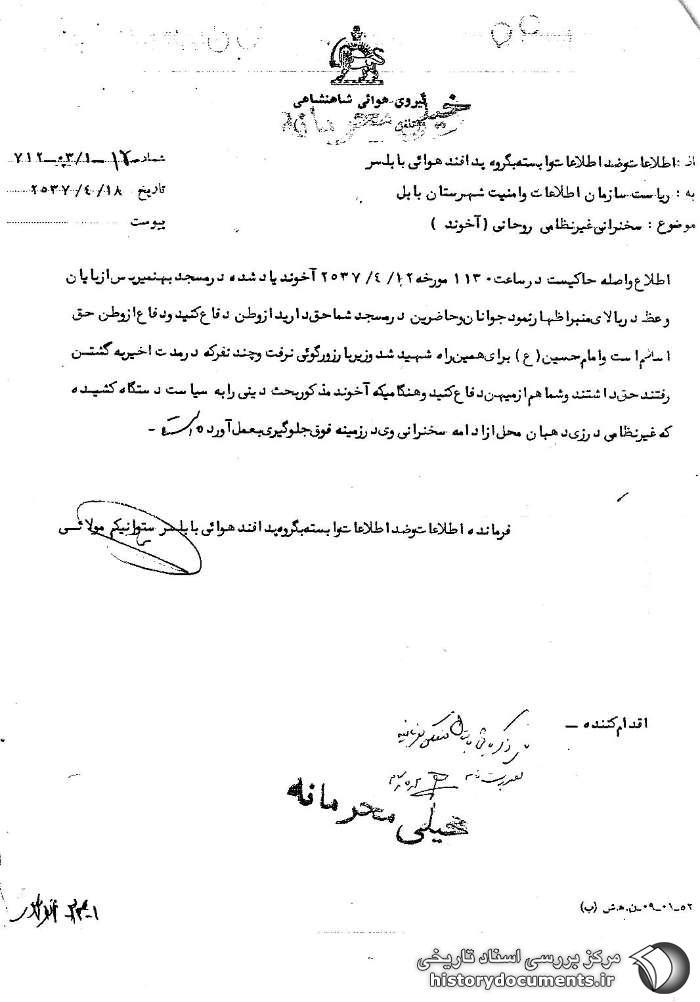 نیروی هوائی شاهنشاهی
خیلی محرمانه
از : اطلاعات وضد اطلاعات وابسته بگروه پدافند هوائی بابلسر
شماره ۱۲-۱/۳-۷۱۲
به : ریاست سازمان اطلاعات وامنیت شهرستان بابل
تاریخ ۲۵۳۷/۴/۱۸
موضوع : سخنرانی غیرنظامی روحانی ( آخوند )
پیوست
اطلاع واصله حاکیست درساعت ۱۱۳۰ مورخه ۲۵۳۷/۴/۱۲ آخوند یاد شده درمسجد بهنمیرپس ازپایان
وعظ دربالای منبراظهارنمود جوانان وحاضرین درمسجد شماحق دارید ازوطن دفاع کنید ودفاع ازوطن حق
است وامام حسین (ع) برای همین راه شهید شد وزیربارزورگوئی نرفت وچند نفرکه درمدت اخیربه گشتن
رفتند حق داشتند وشماهم ازمیهن دفاع کنید وهنگامیکه آخوند مذکوربحث دینی رابه سیاست دستگاه کشیده
که غیرنظامی درزی دهبان محل ازادامه سخنرانی وی درزمینه فوق جلوگیری بعمل آورده است -
فرمانده اطلاعات وضد اطلاعات وابسته بگروه پدافند هوائی بابلسر ستوانیکم مولائی
اقدام کننده -
خیلی محرمانه
۵۲-۰۱-۰۹-ن.ه.ش (ب)
مرکز بررسی اسناد تاریخی
historydocuments.ir